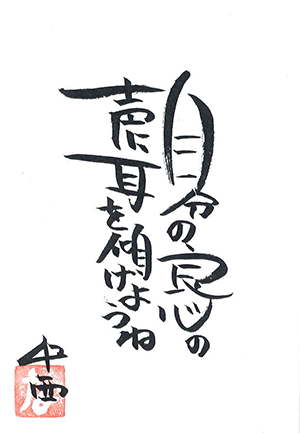 自分の良心の
声に耳を傾けようね
中西